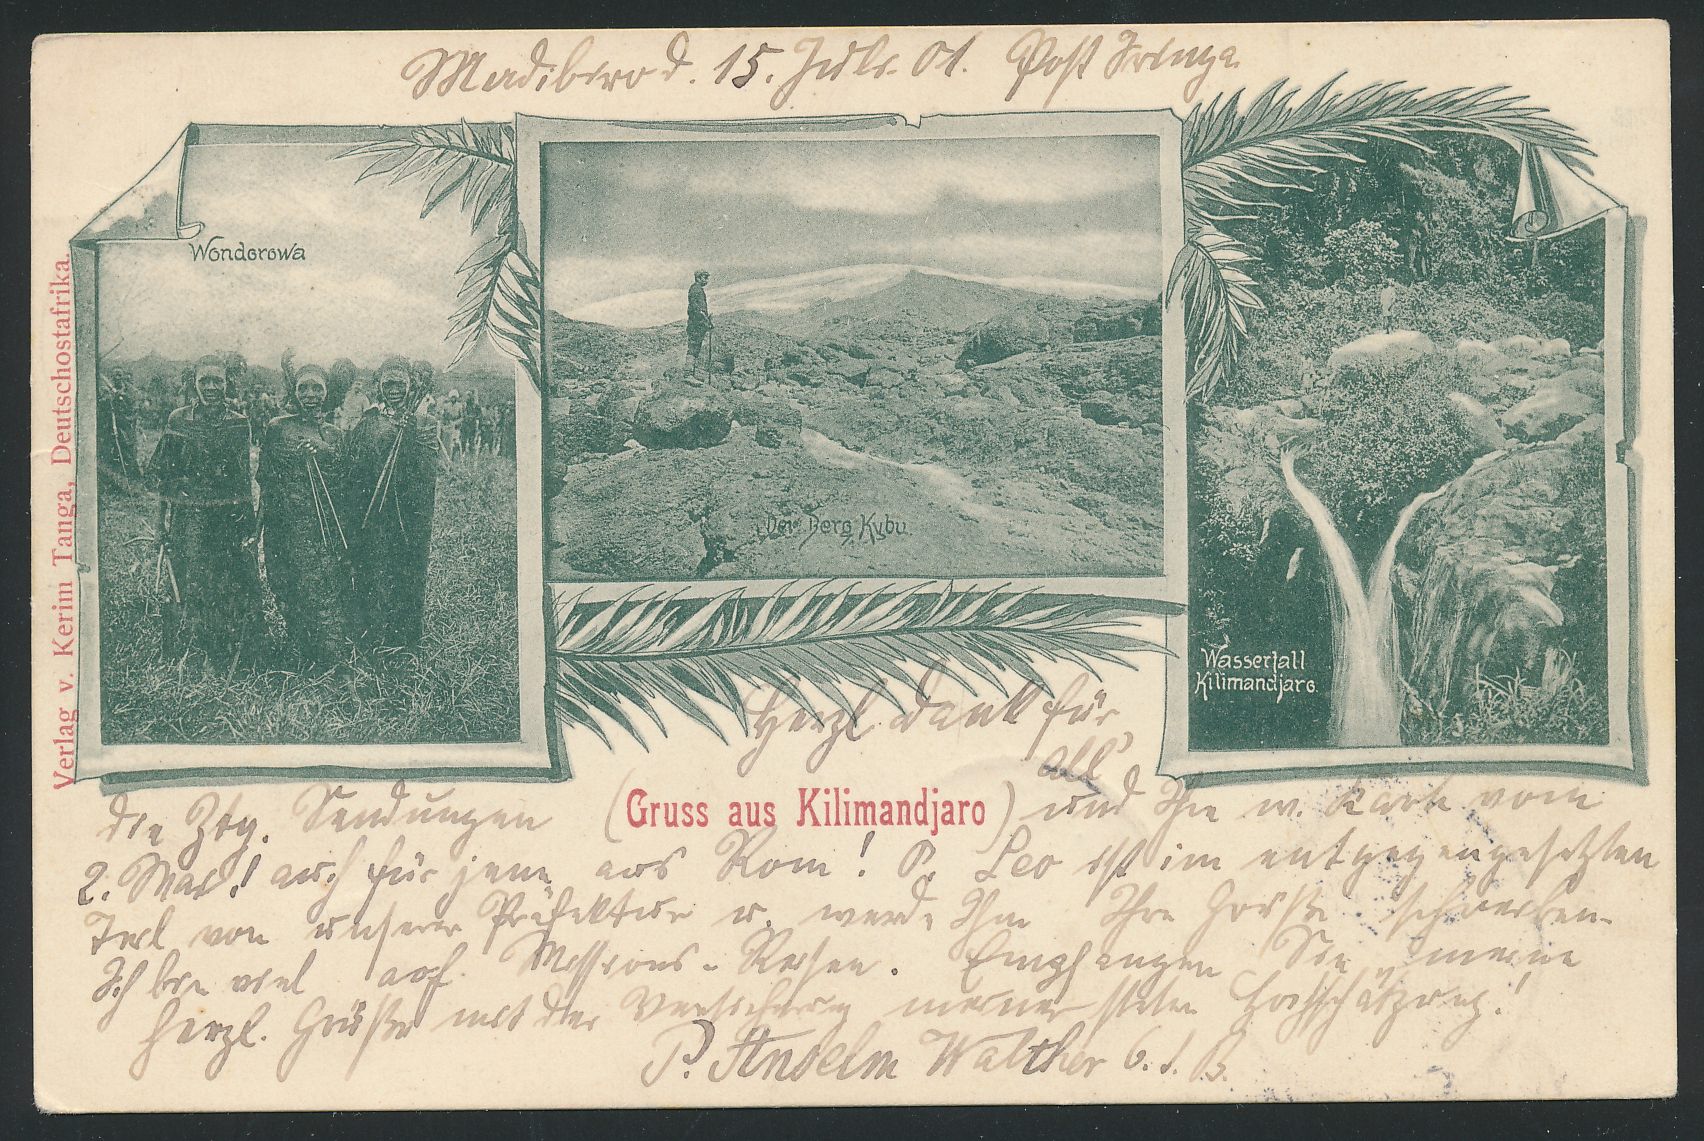 Madibiro d. 15. Juli 01. Post Iringa
Wondorowa
Der Berg Kybu
Wasserfall
Kilimandjaro.
Verlag v. Kerim Tanga, Deutschostafrika.
Herzl Dank für
all'
die Ztg. Sendungen (Gruss aus Kilimandjaro) und Ihre w. Karte vom
2. Mai! auch für jene aus Rom! P. Leo ist im entgegengesetzten
Teil von unserer Präfektur u. werde Ihm Ihre Grüße schreiben.
Ich bin viel auf Missions-Reisen. Empfangen Sie meine
herzl. Grüße mit der Versicherung meiner steten Hochschätzung!
P. Anselm Walther O. S. B.